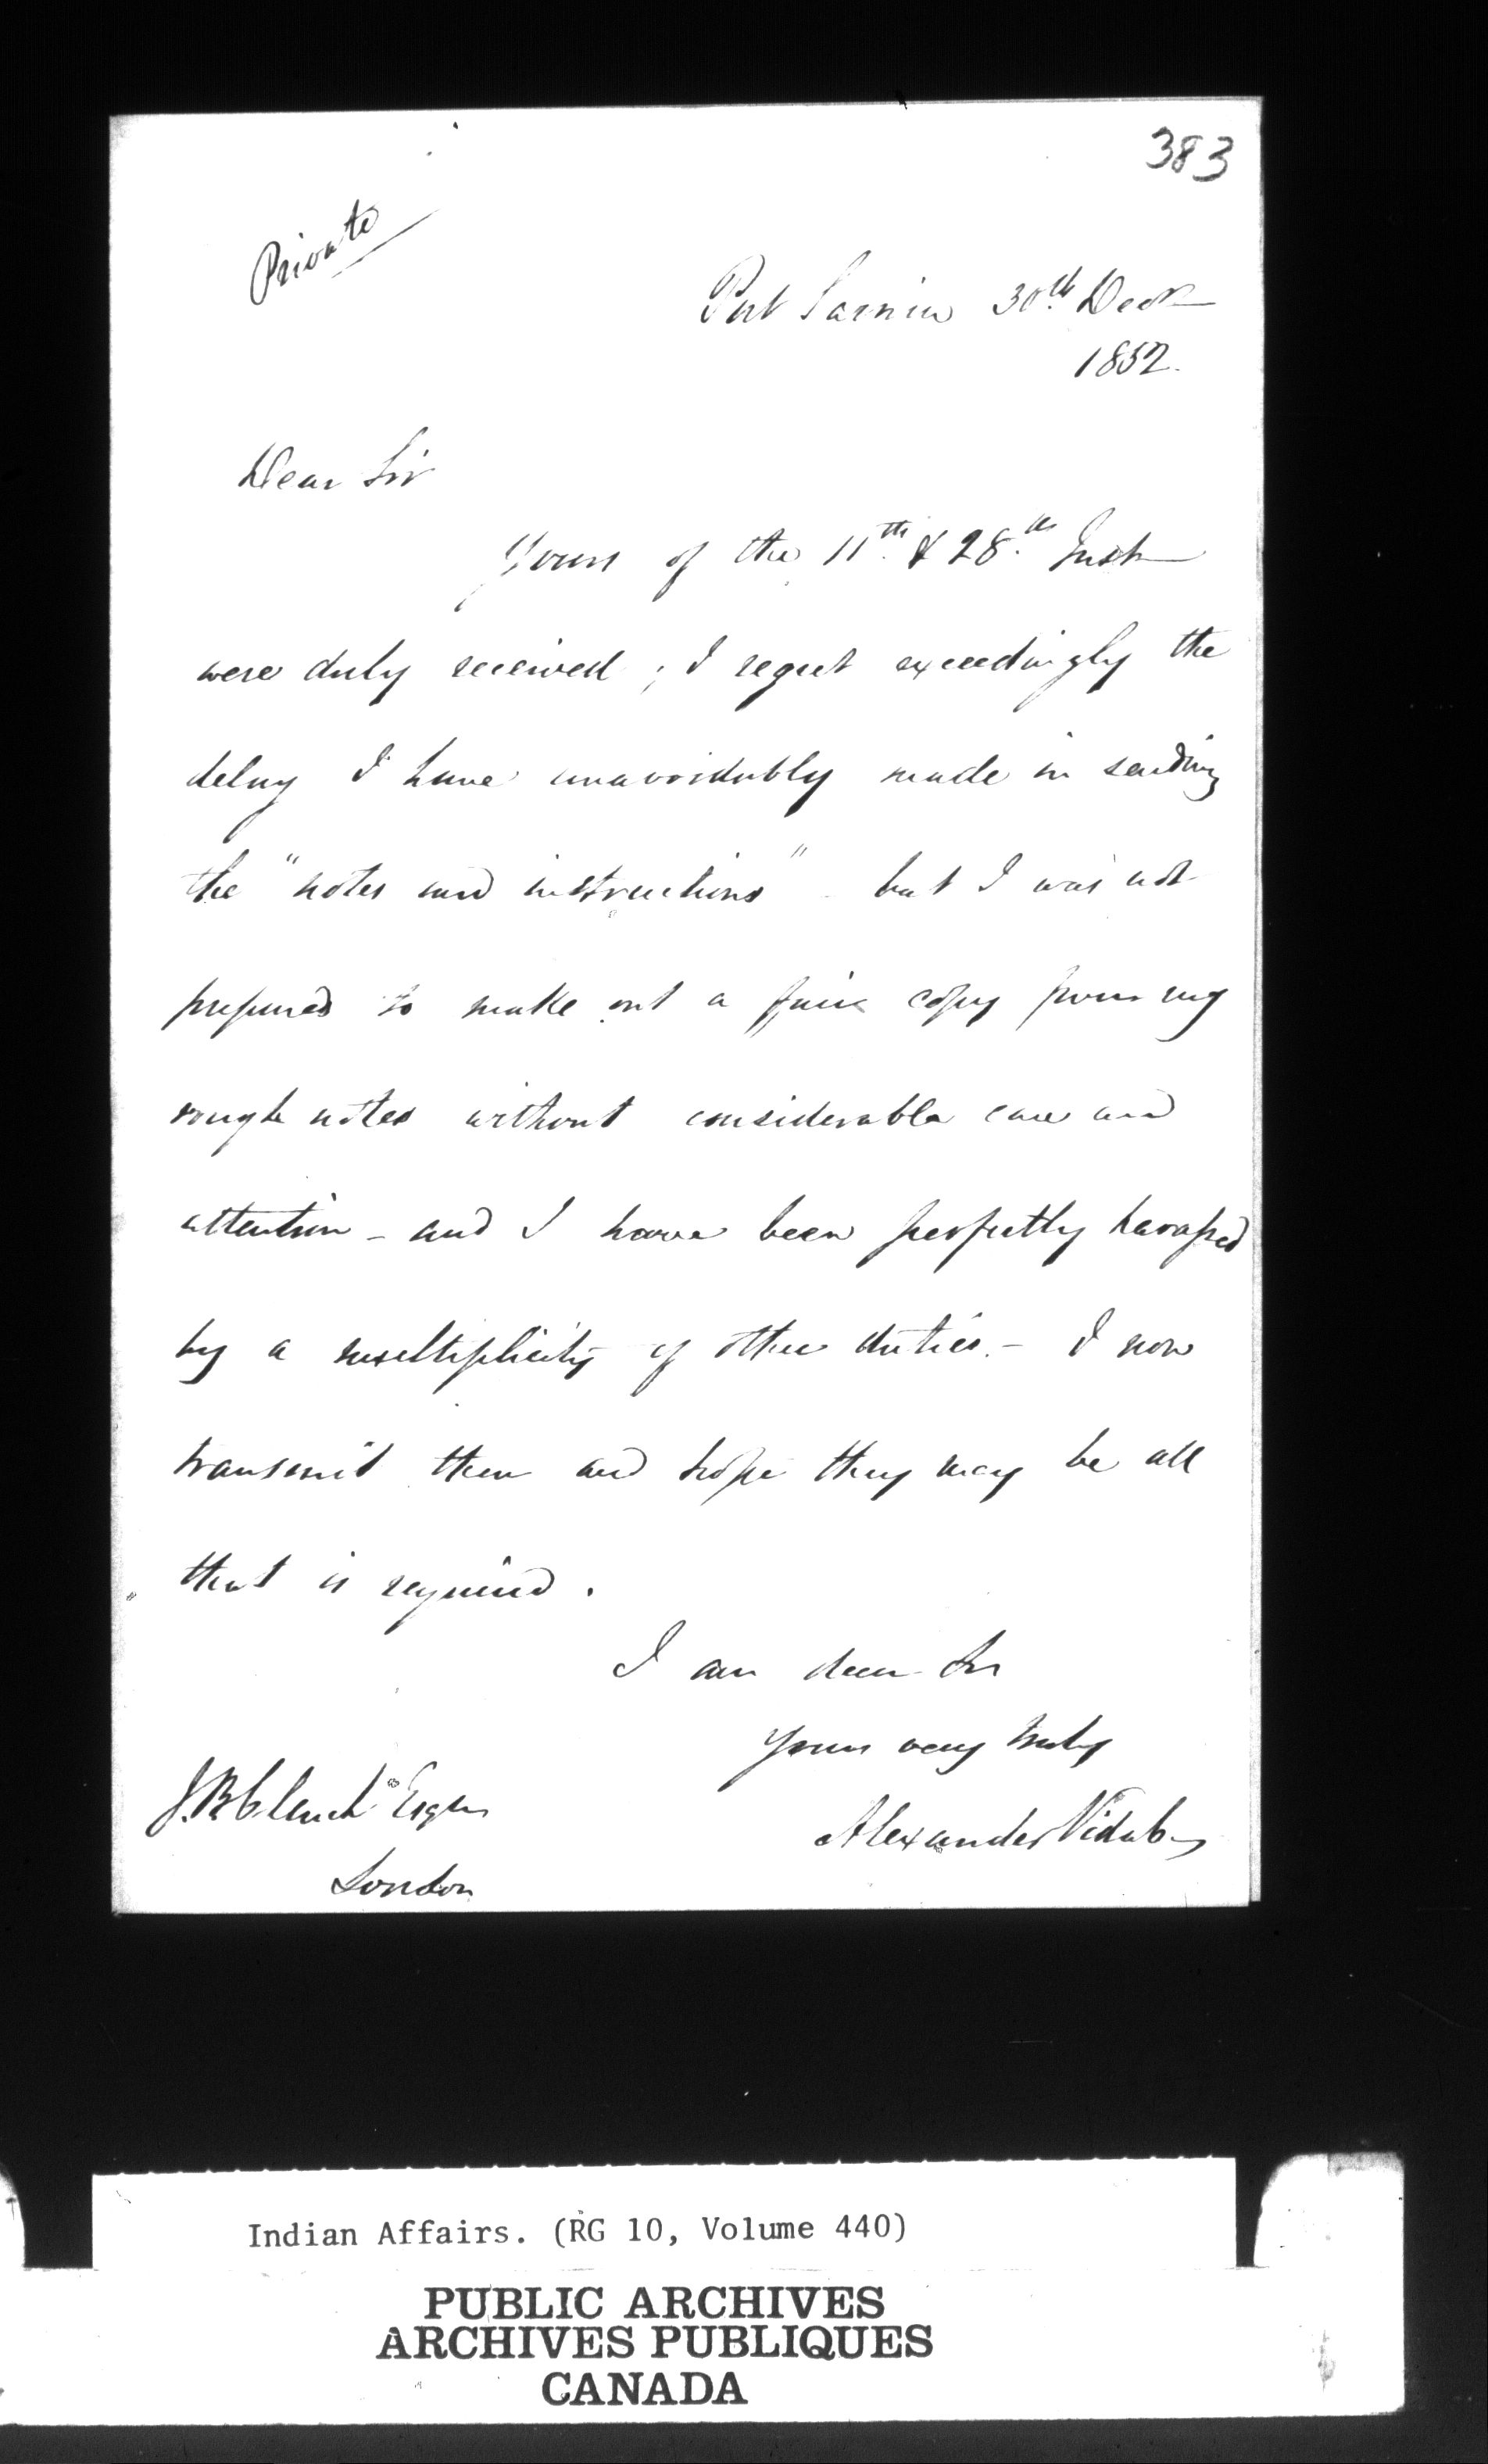 383
Private
Port Sarnia 30th Decr
1852.
Dear Sir
Yours of the 11th & 28th Inst
were duly received; I regret exceedingly the
delay I have unavoidably made in sending
the "notes and instructions" - but I was not
prepared to make out a fair copy from my
rough notes without considerable care and
attention - and I have been perfectly harassed
by a multiplicity of other duties. - I now
transmit them and hope they may be all
that is required.
I am dear Sir
Yours very truly
Alexander Vidal
J.B. Clench Esqre
London
Indian Affairs. (RG 10, Volume 440)
PUBLIC ARCHIVES
ARCHIVES PUBLIQUES
CANADA